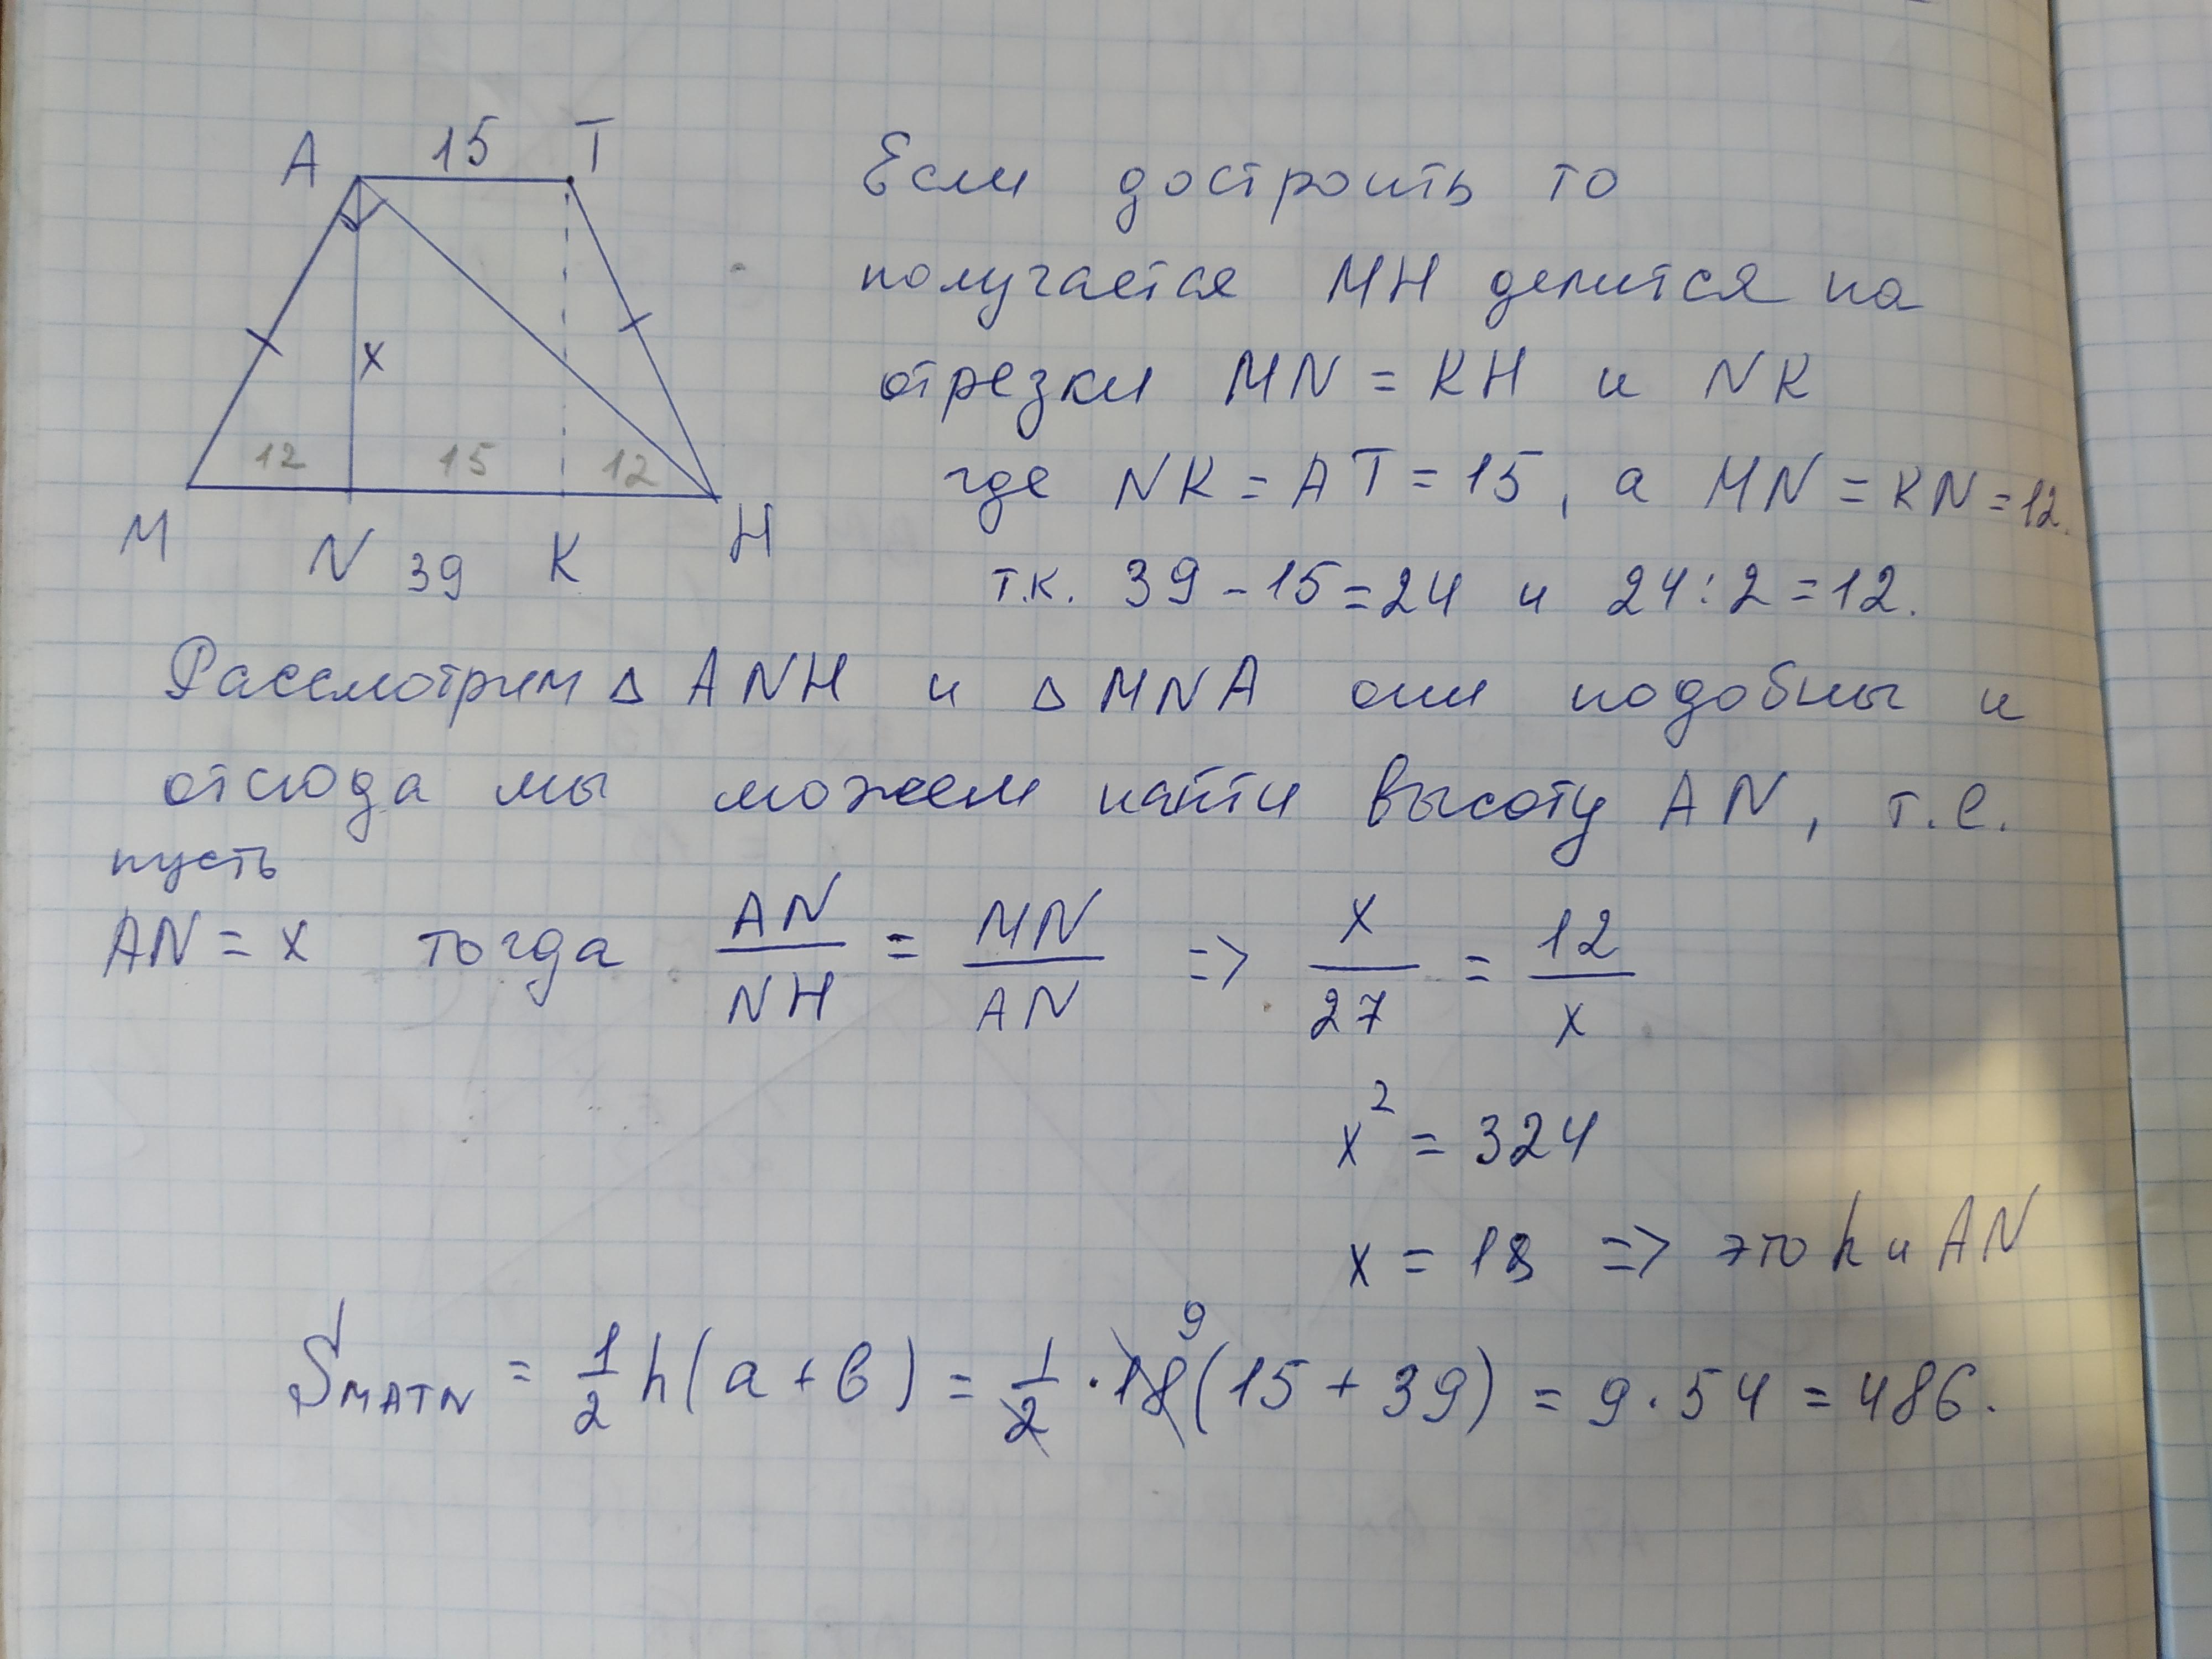 A 15 T
x
12 15 12
M N 39 K H
Если достроить то
получается MH делится на
отрезки MN = KH и NK
где NK = AT = 15, а MN = KN = 12.
т.к. 39 - 15 = 24 и 24 : 2 = 12.
Рассмотрим △ ANH и △ MNA они подобны и
отсюда мы можем найти высоту AN, т.е.
пусть
AN = x тогда AN/NH = MN/AN => x/27 = 12/x
x² = 324
x = 18 => это h и AN
S MATN = 1/2 h(a + b) = 1/2 · 18 9 (15 + 39) = 9 · 54 = 486.